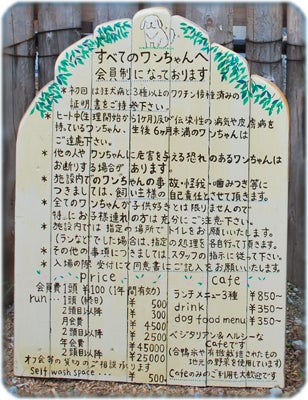 すべてのワンちゃんへ
会員制になっております
* 初回は狂犬病と3種以上のワクチン接種済みの
証明書をご持参下さい。
* ヒート中(生理開始から1ケ月)及び伝染性の病気や皮膚病を
持っているワンちゃん、生後6ヶ月未満のワンちゃんは
ご遠慮下さい。
* 他の人やワンちゃんに危害を与える恐れのあるワンちゃんは
お断りする場合があります。
* 施設内でのワンちゃんの事故・怪我・噛みつき等に
つきましては、飼い主様の自己責任とさせて頂きます。
* 全てのワンちゃんが子供好きとは限りませんので
特に、お子様連れの方は充分にご注意下さい。
* 施設内では指定の場所でトイレをお願いいたします。
(ランなどでした場合は、指定の処理を各自行って頂きます。
* その他の事項につきましては、スタッフの指示に従って下さい。
* 入場の際、受付にて同意書にご記入をお願いいたします。
price
会員費1頭 ¥100(1年間有効)
run… 1頭(終日) ¥500
2頭目以降 ¥300
月会費 ¥4500
2頭目以降 ¥2500
年会費 ¥45000
2頭目以降 ¥25000
オフ会等の貸切のご相談承ります
Self wash space… ¥500
cafe
ランチメニュー3種 ¥850~
drink ¥350~
dog food menu ¥350~
ベジタリアン&ヘルシーな
Cafeです
(合鴨米や有機栽培されたもの
地元の野菜を使用しています)
Cafeのみのご利用も大歓迎です